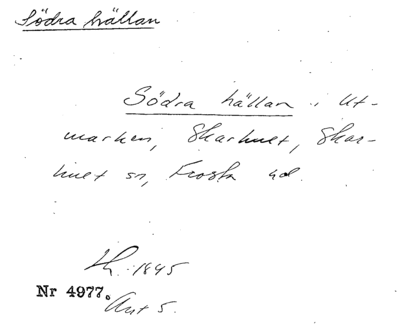 Södra hällan
Södra hällan i Ut-
marken, Skarhult, Skar-
hult sn, Frosta hd.
1845
Nr 4977.
Akt 5.